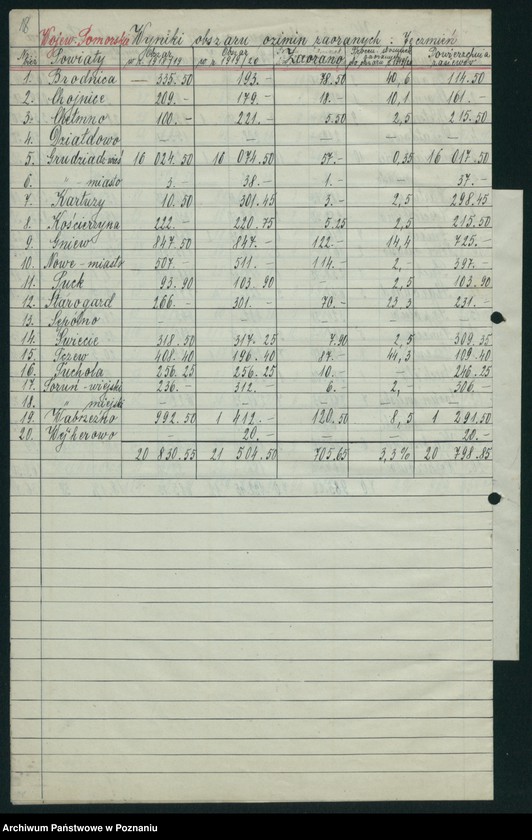 18.
Wojew. Pomorskie Wyniki obszaru ozimin zaoranych: Jęczmień
Powiaty Obszar w r. 1918/19 Obszar w r. 1919/20 Zaorano Powierzchnia zasiewów
1. Brodnica — 335.50 193.- 78.50 40,6 114.50
2. Chojnice 209.- 179.- 18.- 10,1 161.-
3. Chełmno 100.- 221.- 5.50 2,5 215.50
4. Działdowo — — — — —
5. Grudziądz-wieś 16 024.50 16 074.50 57.- 0,35 16 017.50
6. " - miasto 3.- 38.- 1.- — 37.-
7. Kartuzy 10.50 301.45 3.- 2,5 298.45
8. Kościerzyna 222.- 220.75 5.25 2,5 215.50
9. Gniew 847.50 847.- 122.- 14,4 725.-
10. Nowe-miasto 507.- 511.- 114.- 2,- 397.-
11. Puck 93.90 103.90 — 2,5 103.90
12. Starogard 266.- 301.- 70.- 23,3 231.-
13. Sępólno — — — — —
14. Świecie 318.50 317.25 7.90 2,5 309.35
15. Tczew 408.40 196.40 87.- 44,3 109.40
16. Tuchola 256.25 256.25 10.- — 246.25
17. Toruń-wiejski 236.- 312.- 6.- 2,- 306.-
18. " miejski — — — — —
19. Wąbrzeźno 992.50 1 412.- 120.50 8,5 1 291.50
20. Wejherowo — 20.- — — 20.-
20 830.55 21 504.50 705.65 3,3% 20 798.85
Archiwum Państwowe w Poznaniu